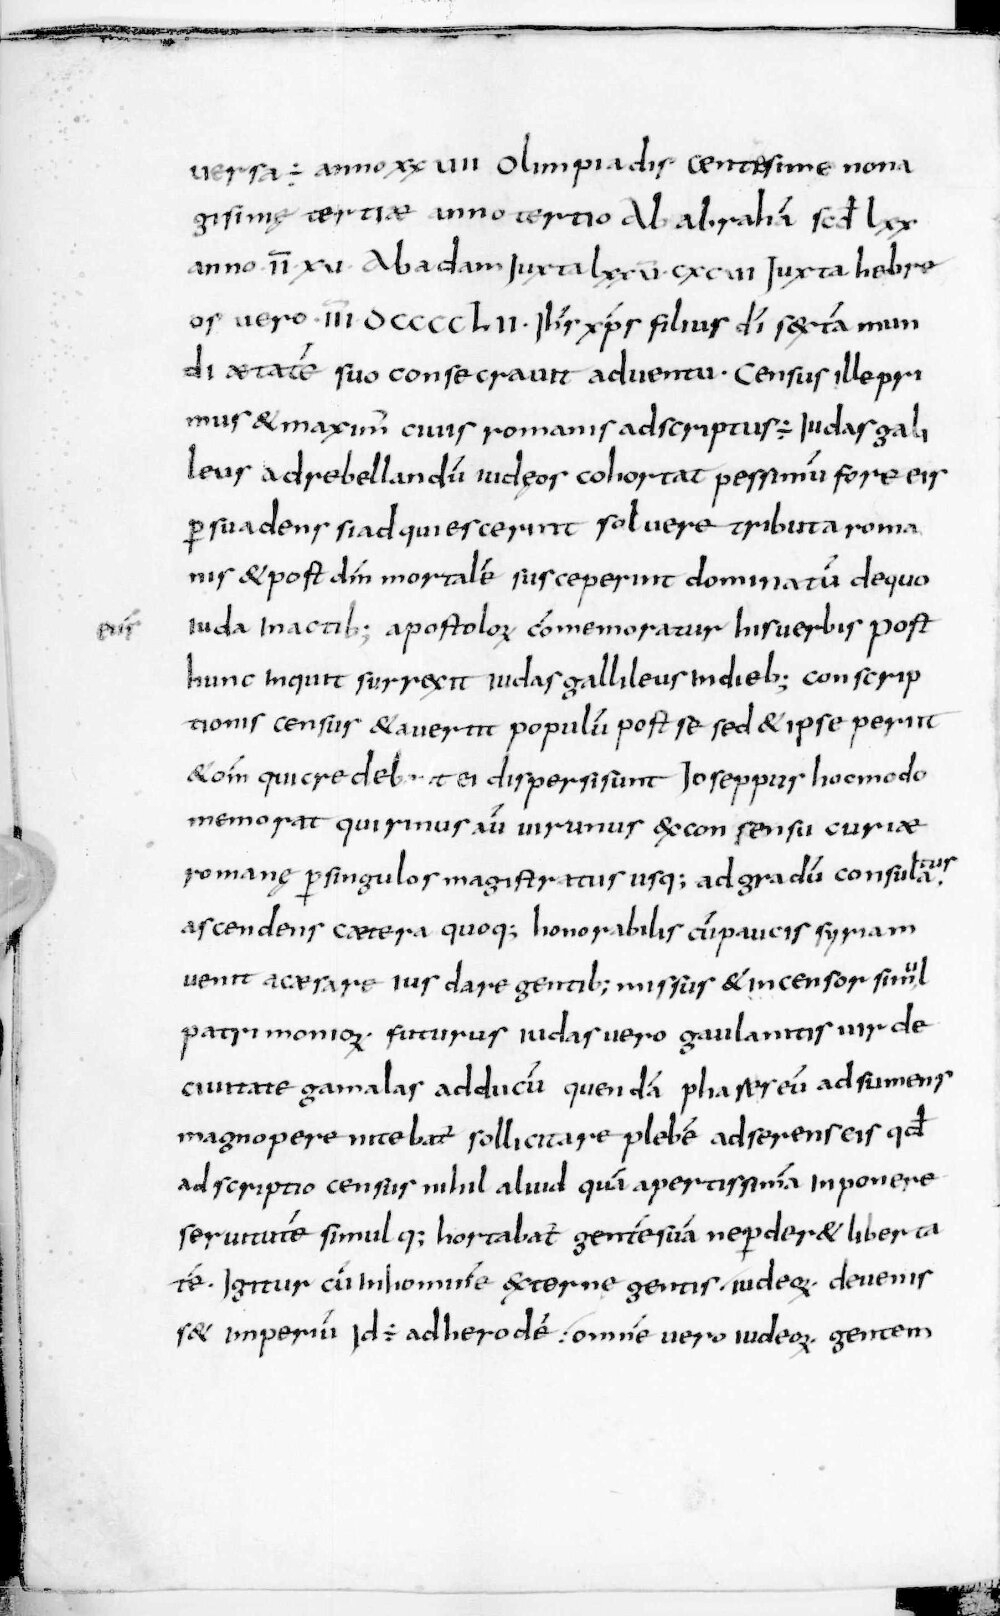 versa ÷ anno xx vııı olimpiadis centesime nona
gisimę tertiæ anno tertio Ab abrahā scđ lxx
anno · īī · xv · Ab adam Juxta lxx v̄ · cxcvıı Juxta hebre
os vero · ııı̄ · DCCCCLıı · Jhs̄ xp̄s filius dī s&tā mun
di ætatē suo consecravit adventu · Census ille pri
mus & maxim̄ cuius romanis adscriptus ÷ Judas gali
leus ad rebellandū iudęos cohortat pessimū fore eis
ꝑsuadens si adquiescerint solvere tributa roma
nis & post dīn mortalē susceperint dominatū de quo
iuda In actib; apostoloꝝ cōmemoratur his verbis post
eius
hunc inquit surrexit iudas gallileus In dieb; conscrip
tionis census & avertit populū post se sed & ipse periit
& om̄ qui credeb t ei dispersi sunt Joseppus hoc modo
memorat quirinus aū vir unus ex con sensu curiæ
romanę ꝑ singulos magistratus usq; ad gradū consulatus
ascendens cætera quoq; honorabilis cū paucis syriam
venit a cæsare ius dare gentib; missus & in censor simul
patrimonioꝝ · futurus iudas vero gaulanitis vir de
civitate gamalas adducū quendā phasereū adsumens
magnopere nitebat̄ sollicitare plebē adserens eis qđ
adscriptio census nihil aliud quā apertissimā inponere
servitutē simul q; hortabat̄ gentē suā ne ꝑder& liberta
tē · Igitur cū In homine externe gentis · iudeoꝝ · devenis
s& imperiū Id ÷ ad herodē : omnē vero iudeoꝝ · gentem